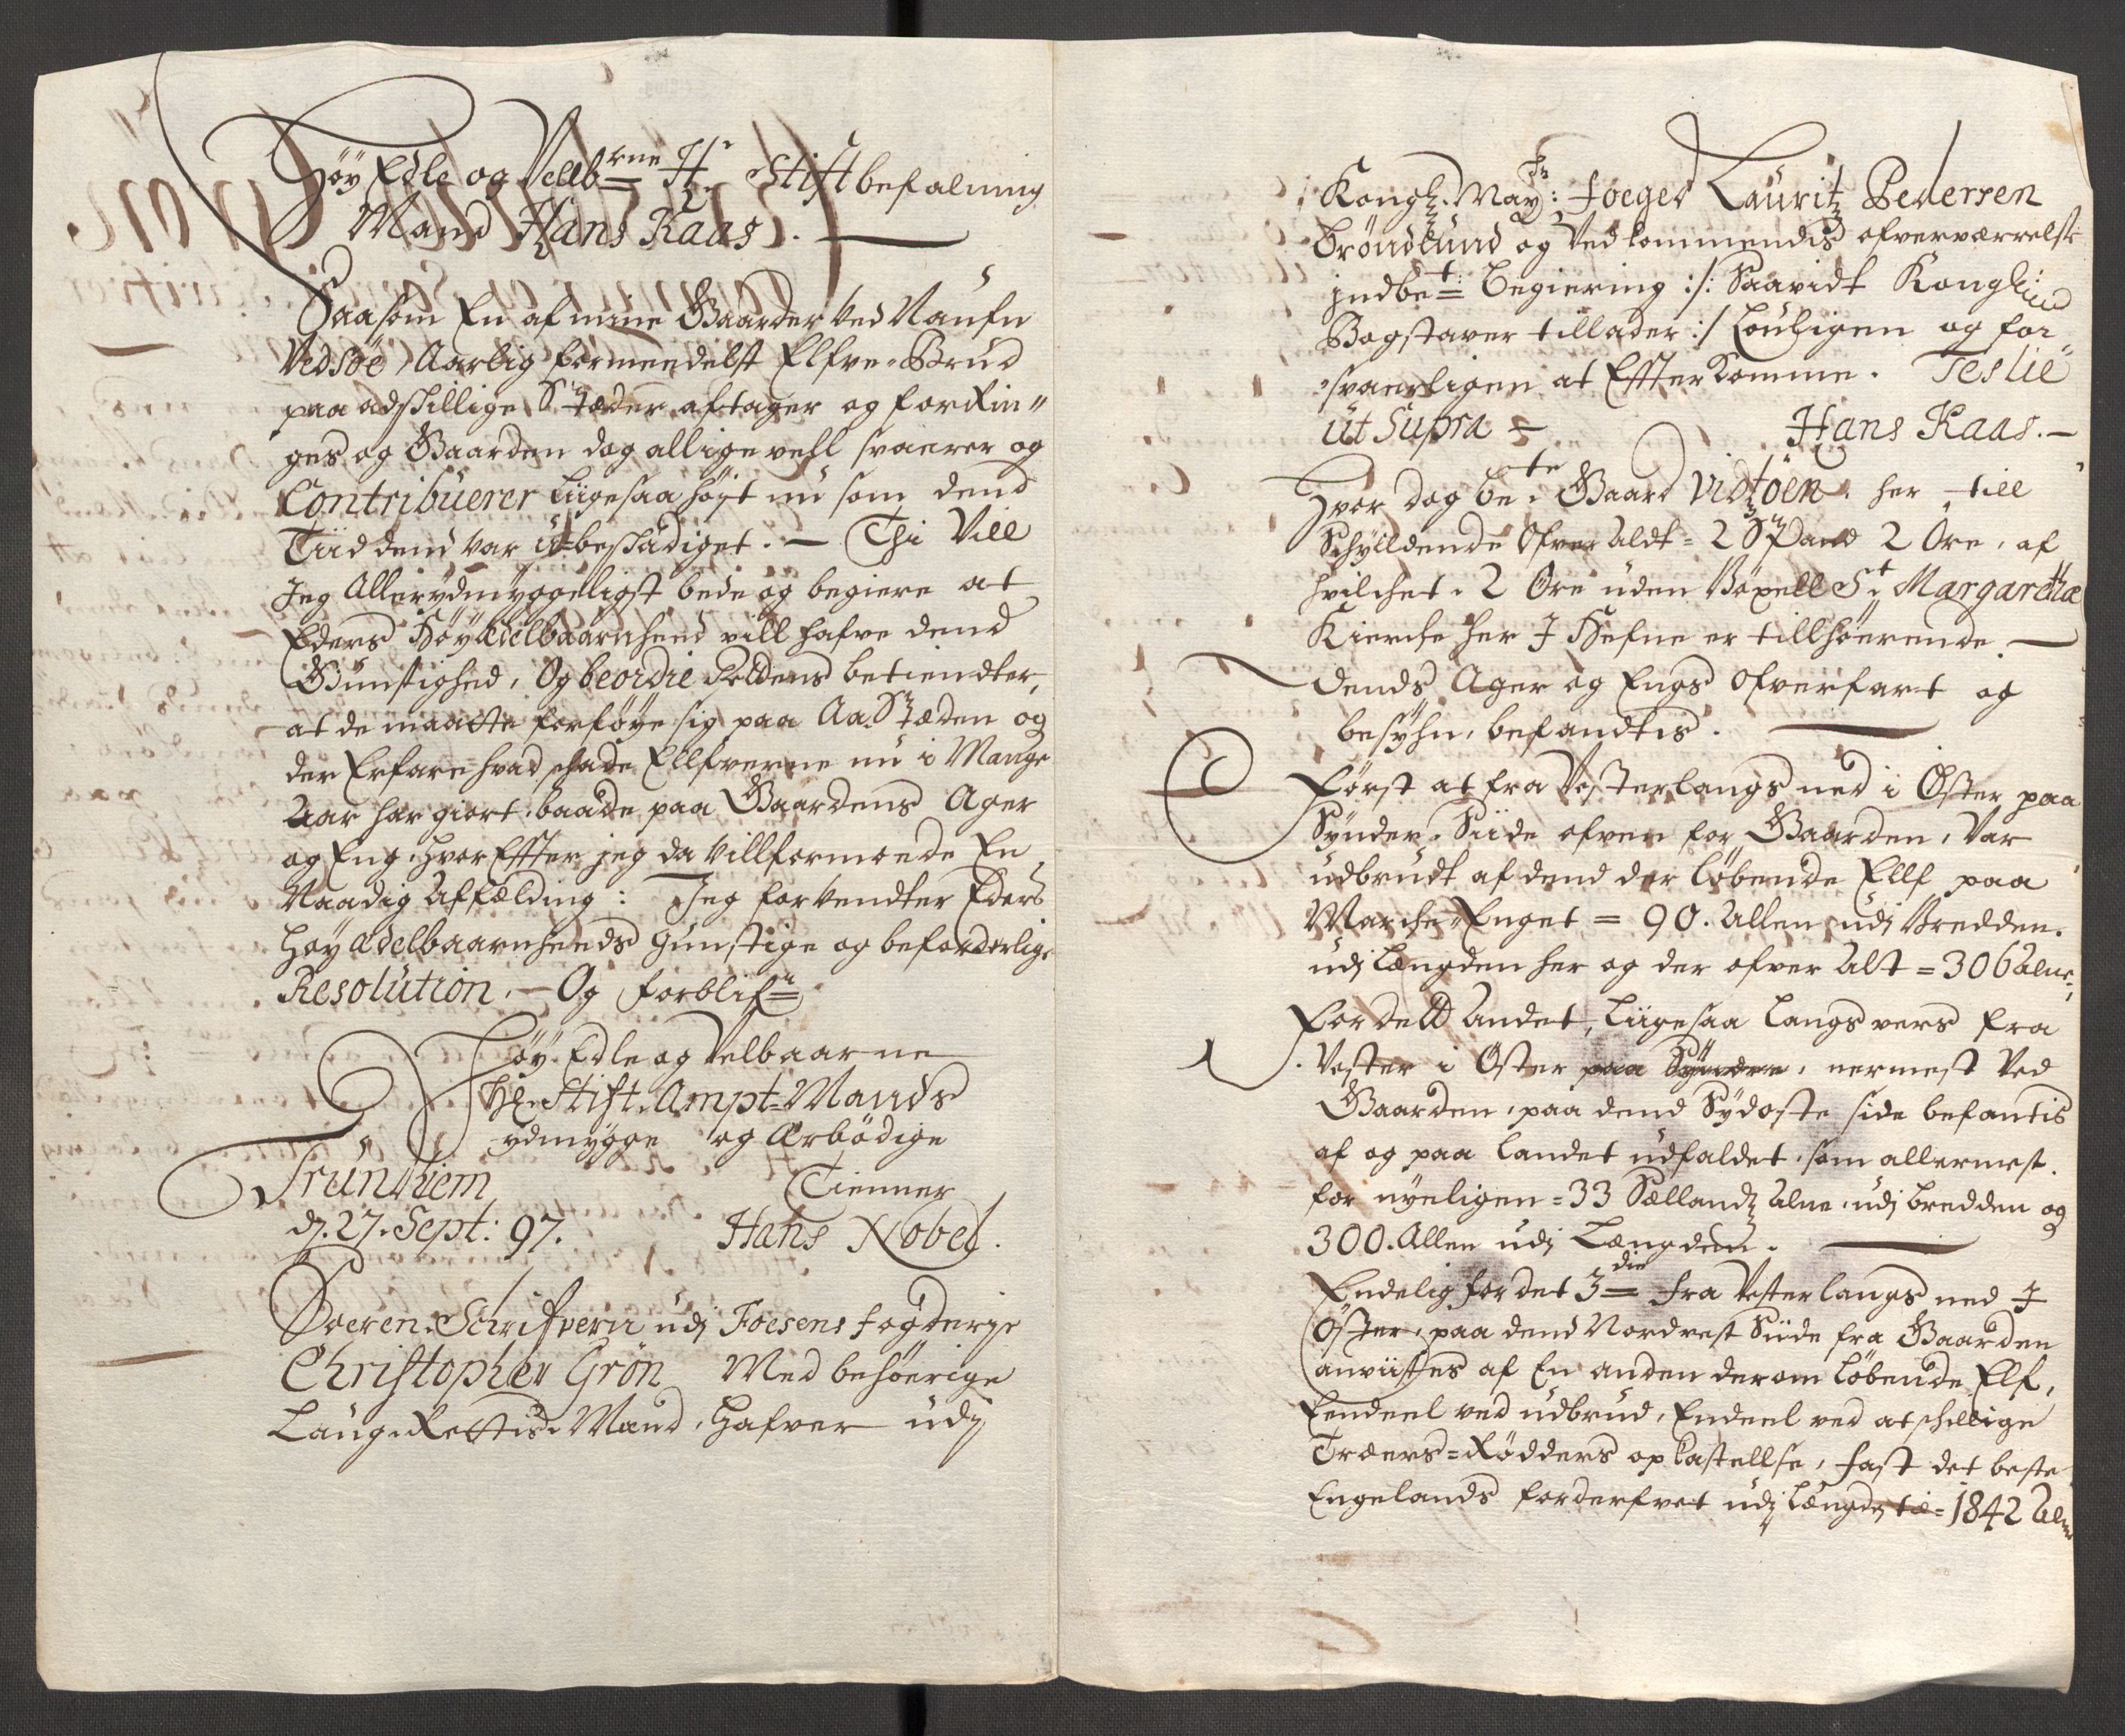 Høy Edle og Vellb:rne Hr. Stiftbefalning
Mand Hans Kaas.
Saasom En af mine Gaarder ved Naufn
Vedsøe, Aarlig formeedelst Elfve-Brud
paa adskillige Stæder aftager og forRin"
ges og Gaarden dog allige vell svarer og
Contribuerer liigesaa høyt nu som dend
Tiid dend var u-beskadiget. — Thi Vill
Jeg Allerydmyggeligst bede og begiere at
Eders Høyædelbaarnheed vill hafve dend
Gunstighed, Og beordre Rettens betiendter,
at de maatte forføye sig paa Aa Stæden og
der Erfare hvad schade Ellfverne nu i Mange
Aar har giort, baade paa Gaardens Ager
og Eng, hvor Effter jeg da vill formoede En
Naadig Affælding: Jeg forvendter Eders
høyædelbaarnheeds gunstige og beforderlige
Resolution. — Og forblifr
Høy Edle og Velbaarne
Hr. Stift-Ampt-Mands
ydmygge og Ærbødige
Trundhiem Tienner
d. 27. Sept: 97. Hans Nobel.
Soeren-Schrifvern udj Foesens fogderje
Christopher Grøn Med behøerige
Laug-Rettis-Mænd, hafver udj
Kongl. Mayts: foeget Lauritz Pedersen
Brøndlund og Vedkommendis ofverværrelse
jndbet: begiering :/: Saavidt Kongl:
Bogstaver tillader :/ louligen og for
svarligen at Effterkomme. Teslie
ut Supra Hans Kaas. —
Hvor dog bete Gaard Vidtöen, her till
Schyldende Ofver Aldt = 2 Spand 2 Öre, af
hvilchet 2 Öre uden Böxell St Margarethæ
Kierche her J Hefne er tillhøerende. —
Dends Ager og Engs ofverfart og
besyhn, befandtis.
Først at fra Vesterlangs ned i Øster paa
Synder-Siide ofven for Gaarden, Var
udbrudt af dend der løbende Ellf paa
Marche-Enget = 90. Allen udj Bredden.
udj Længden her og der ofver Alt = 306 Alne,
For det Andet, liigesaa langs vers fra
Vester i Øster paa Syndre, nermest Ved
Gaarden, paa dend Sydoste side befantis
af og paa landet udfaldet, som allermest.
for nyeligen = 33 Sællandz Alne, udj bredden og
300. Allen udj Længden.
Endelig for det 3die fra Vesterlangs ned J
Öster, paa dend Nordvest Siide fra Gaarden
anviistes af En anden derom løbende Elf,
Eendeel ved udbrud, Endeel ved atschillige
Træers-Rødders opkastellse, fast det beste
Engelands forderfvet udj længden til = 1842 Alne